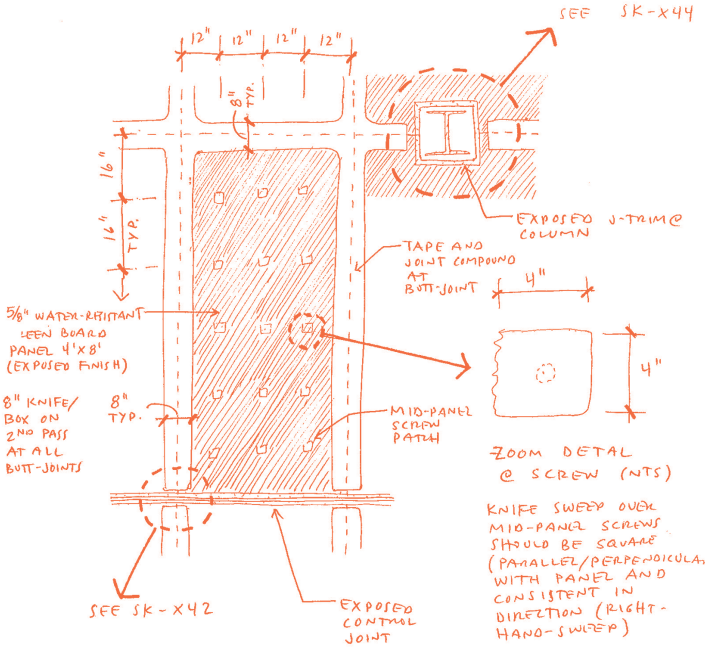 SEE SK-X44
12" 12" 12" 12"
8"
TYP.
16"
16"
TYP.
EXPOSED J-TRIM @
COLUMN
TAPE AND
JOINT COMPOUND
AT
BUTT-JOINT
4"
4"
5/8" WATER-RESISTANT
EEN BOARD
PANEL 4'X8'
(EXPOSED FINISH)
8" KNIFE/
BOX ON
2ND PASS
AT ALL
BUTT-JOINTS
8"
TYP.
MID-PANEL
SCREW
PATCH
ZOOM DETAL
@ SCREW (NTS)
KNIFE SWEEP OVER
MID-PANEL SCREWS
SHOULD BE SQUARE
(PARALLEL/PERPENDICULA
WITH PANEL AND
CONSISTENT IN
DIRECTION (RIGHT-
HAND-SWEEP)
SEE SK-X42
EXPOSED
CONTROL
JOINT